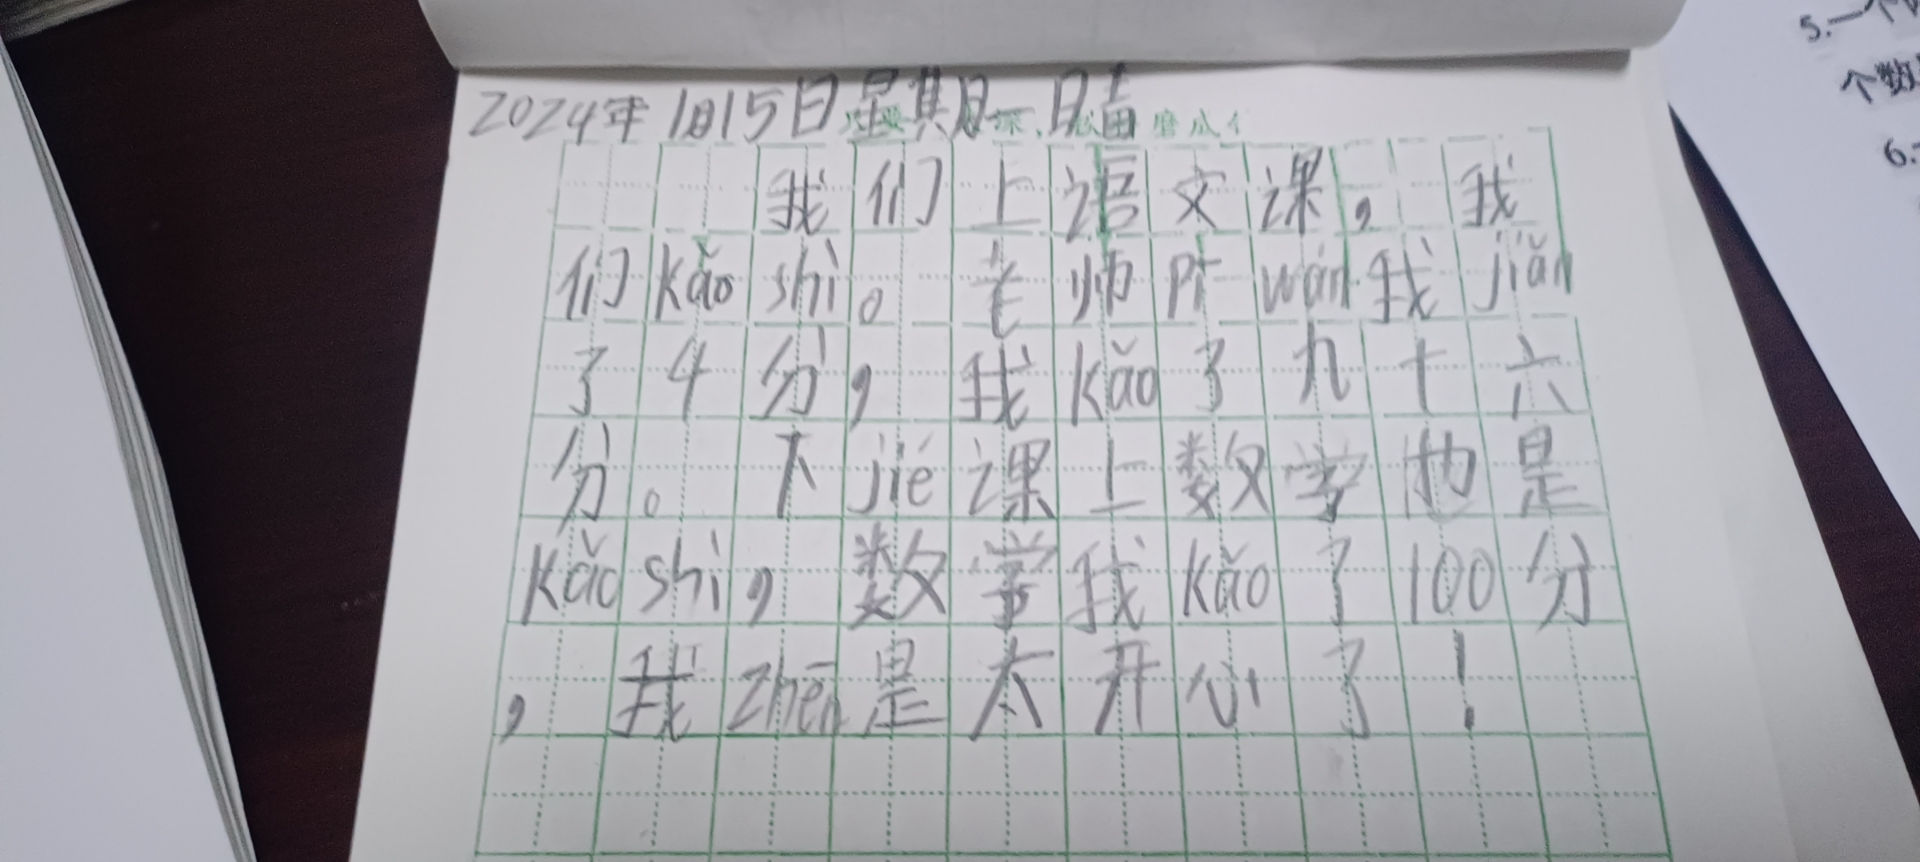 2024年1月15日星期一 晴
我们上语文课，我
们kǎo shì。老师pī wán我jiǎn
了4分，我kǎo了九十六
分。下jié课上数学也是
kǎo shì，数学我kǎo了100分
，我zhēn是太开心了！
5.一个
个数
6.